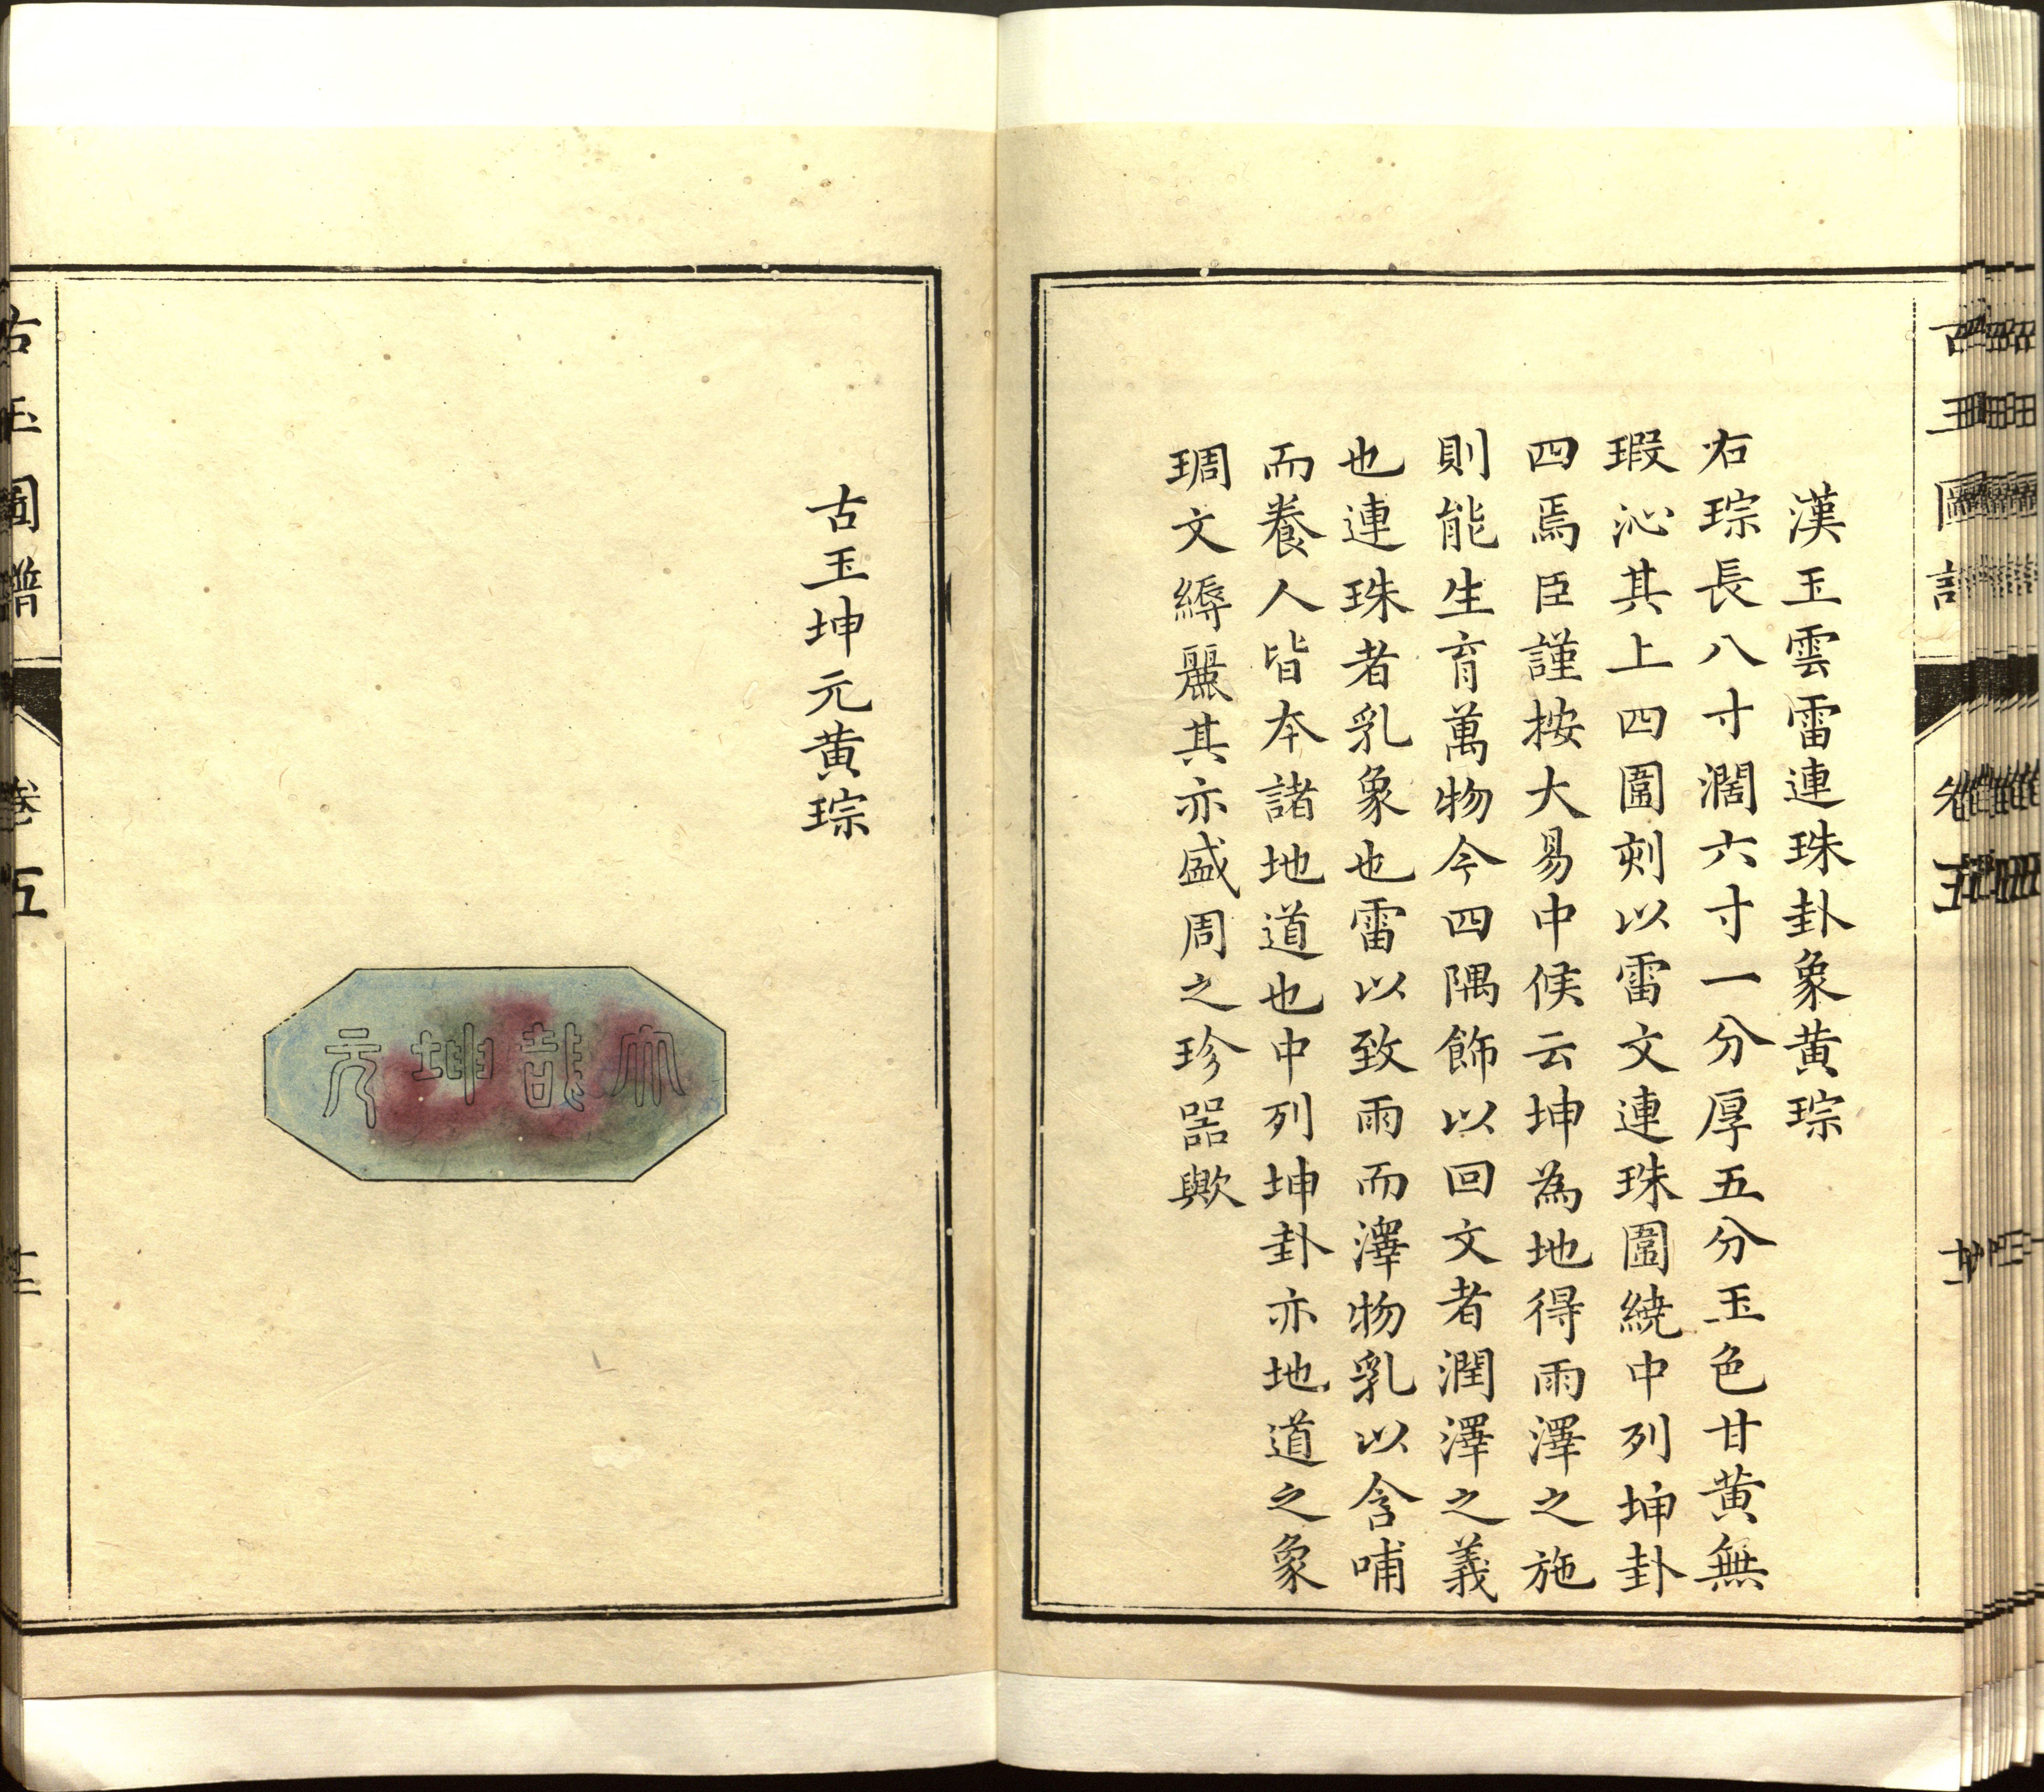 古玉圖譜 卷五 廿
漢玉雲雷連珠卦象黄琮
右琮長八寸濶六寸一分厚五分玉色甘黄無
瑕沁其上四圍刻以雷文連珠圍繞中列坤卦
四焉臣謹按大易中候云坤為地得雨澤之施
則能生育萬物今四隅飾以回文者潤澤之義
也連珠者乳象也雷以致雨而澤物乳以含哺
而養人皆本諸地道也中列坤卦亦地道之象
琱文縟麗其亦盛周之珍器歟
古玉坤元黄琮
大哉坤元
古玉圖譜 卷五